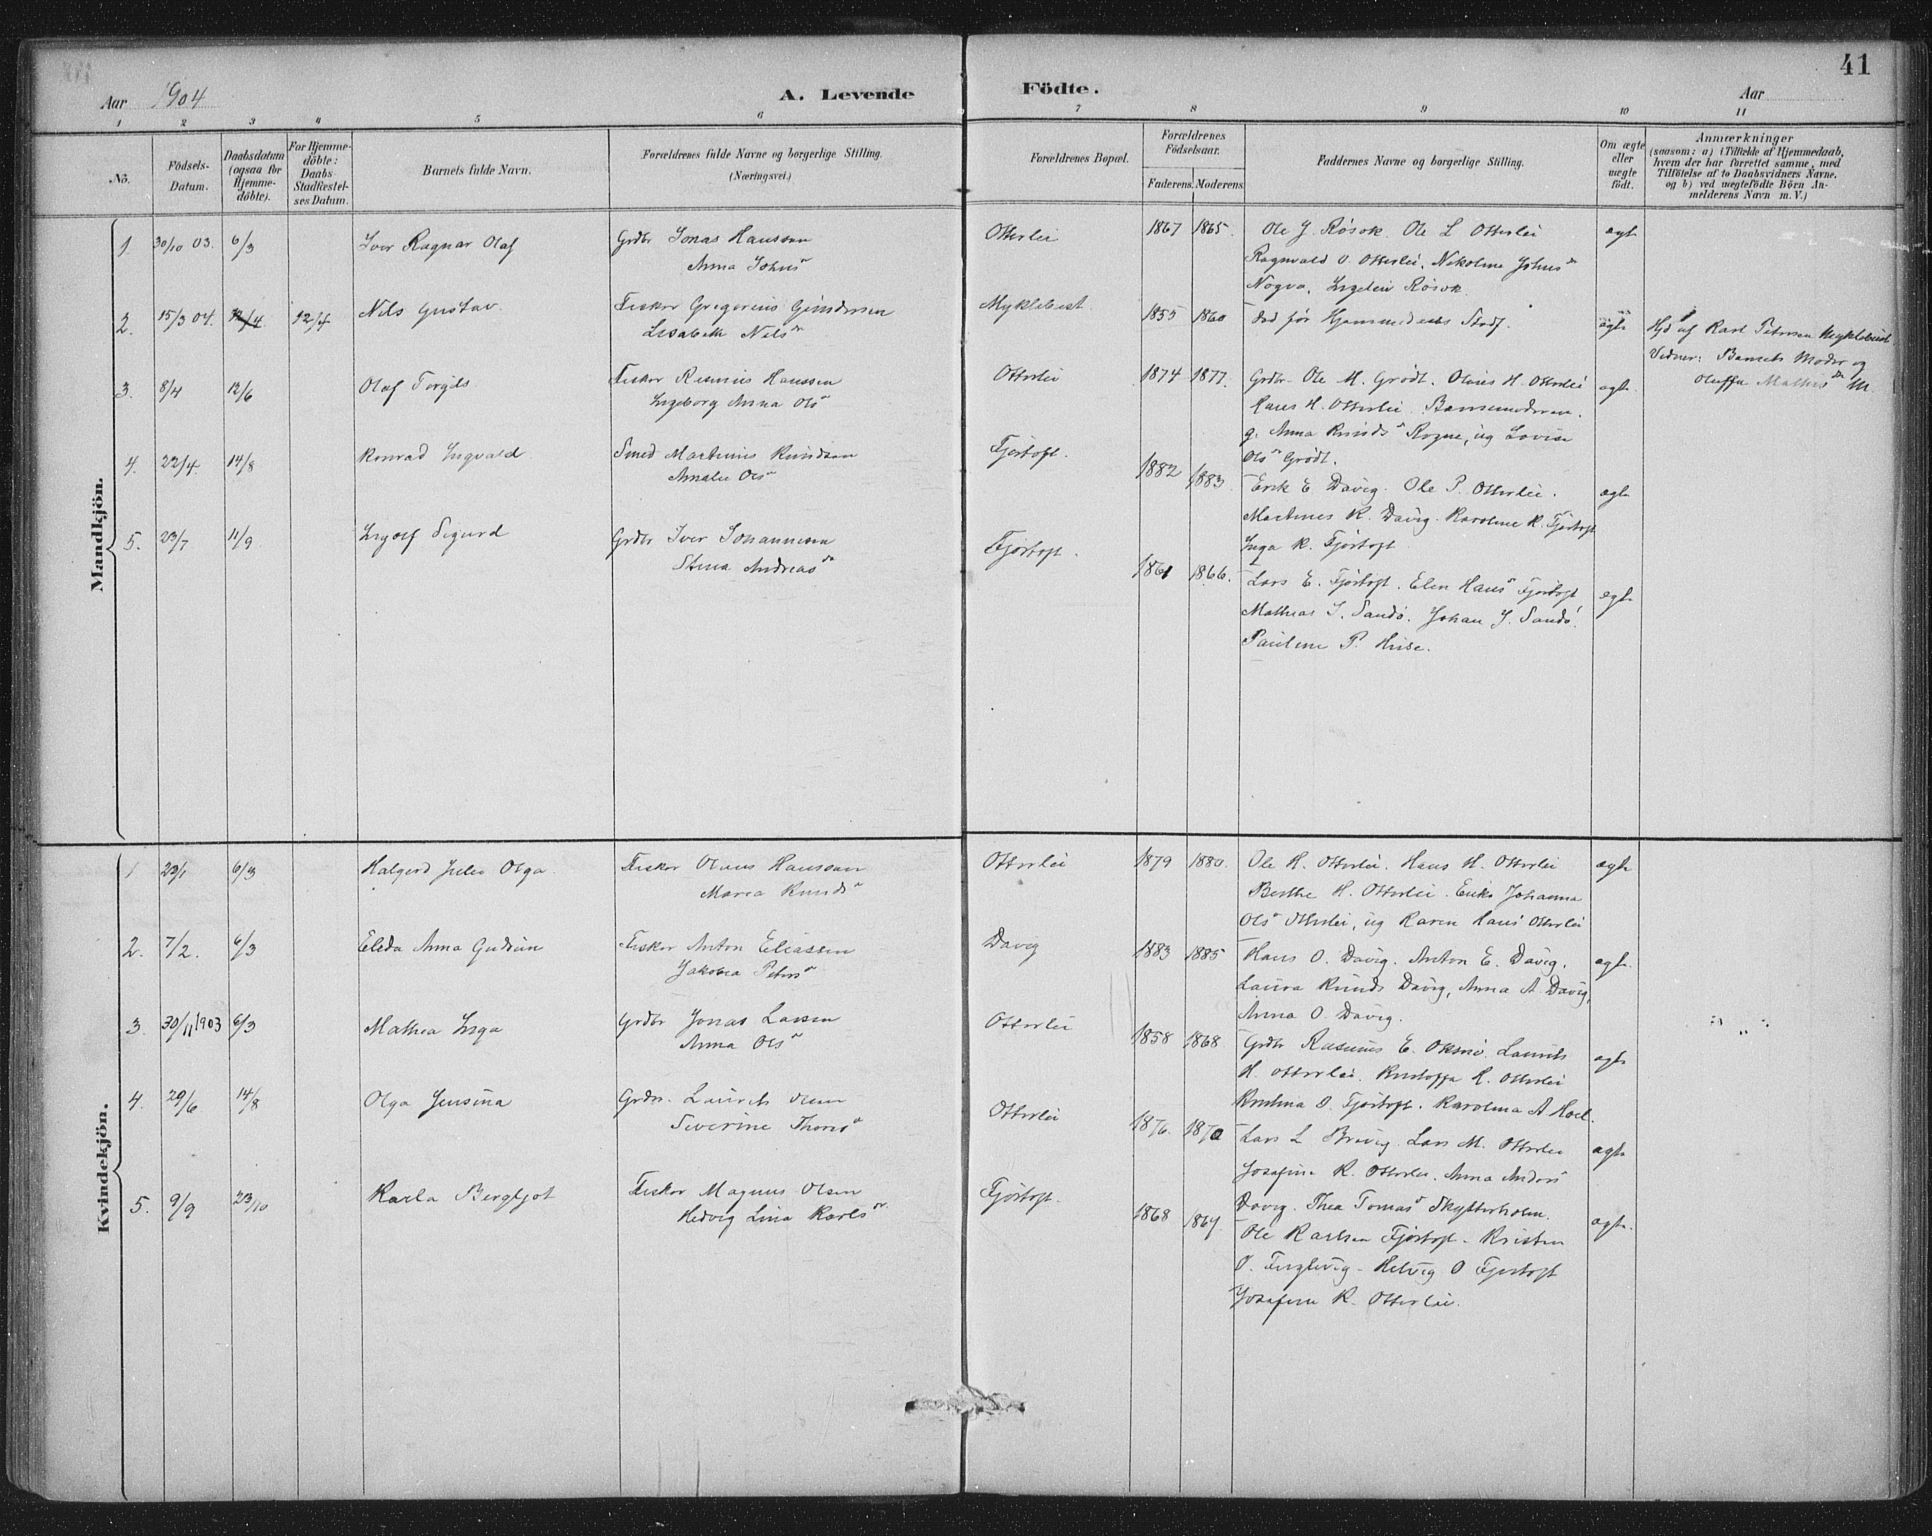 41
Aar 1904
A. Levende
Födte.
Aar
1 2 3 4 5 6 7 8 9 10 11
No.
Födsels-
Datum.
Daabsdatum
(ogsaa for
Hjemme-
döbte).
For Hjemme-
döbte:
Daabs
Stadfæstel-
ses Datum.
Barnets fulde Navn.
Forældrenes fulde Navne og borgerlige Stilling.
(Næringsvei.)
Forældrenes Bopæl.
Forældrenes
Födselsaar.
Faderens. Moderens.
Faddernes Navne og borgerlige Stilling.
Om ægte
eller
uægte
födt.
Anmærkninger
(saasom: a) i Tilfælde af Hjemmedaab,
hvem der har forrettet samme, med
Tilföielse af to Daabsvidners Navne,
og b) ved uægtefödte Börn An-
melderens Navn m. V.)
Mandkjön.
1. 30/10 03. 6/3 Iver Ragnar Olaf Grdbr Jonas Hanssen Otterlei 1867 1865. Ole J. Røsok. Ole L Otterlei ægte
Anna Johns Dr Ragnvald O Otterlei. Nikoline Johns Dr
Nogva, Ingelin Røsok.
2. 15/3 04. 12/4 12/4 Nils Gustav. Fisker Gregorius Gundersen Myklebust 1855 1860 Død før Hjemmedøbets Stadf. ægte Hjd af Karl Petersen Myklebust
Lisabeth Nils Dr Vidner: Barnets Moder og
Oluffa Mathis Dr M.
3. 8/4 12/6 Olaf Torgils Fisker Rasmus Hanssen Otterlei 1874 1877. Grdbr Ole M. Grødt. Olaus H. Otterlei ægte.
Ingeborg Anna Ols Dr Hans H. Otterlei. Barnemoderen.
g. Anna Knuds Dr Rogne, ug Lovise
Ols Dr Grødt.
4. 22/4. 14/8 Konrad Ingvald. Smed Martinus Knudsen Fjørtoft. 1882 1883. Erik E Davig. Ole P. Otterlei. ægte
Amalie Ols Dr Martines K. Davig. Karoline K. Fjørtoft
Inga K. Fjørtoft
5. 23/7 11/9 Ingolf Sigurd Grdbr Iver Johannesen Fjørtoft. 1861 1866. Lars E. Fjørtoft. Elen Hans Dr Fjørtoft ægte
Stina Andreas Dr Mathias I. Sandø. Johan J. Sandø.
Pauline P. Huse.
Kvindekjön.
1 23/1 6/3 Halgerd Julie Olga. Fisker Olaus Hanssen Otterlei 1879 1880. Ole H. Otterlei. Hans H. Otterlei ægte
Maria Knuds Dr Berthe H. Otterlei. Enke Johanna
Ols Dr Otterlei, ug Karen Hans Otterlei
2. 7/2. 6/3 Elida Anna Gudrun Fisker Anton Eliassen Davig 1883 1885 Hans O. Davig. Anton E. Davig. ægte.
Jakobia Peters Dr Laura Knuds Davig, Anna A Davig,
Anna O. Davig.
3. 30/11 1903 6/3 Mathea Inga Grdbr Jonas Larsen Otterlei 1858 1868 Grdbr Rasmus E. Oksnø. Laurits ægte
Anna Ols Dr H. Otterlei. Kristoffa H. Otterlei
Kristina O. Fjørtoft. Karolina A Hoel.
4. 29/6 14/8 Olga Jensina Grdbr. Laurits Olsen Otterlei 1876. 1870 Lars L Brevig. Lars M. Otterlei ægte
Severine Thores Dr Josefine K. Otterlei. Anna Anders
Davig. Thea Tomas Dr Skytterholm.
5. 9/9 23/10 Karla Bergljot Fisker Magnus Olsen Fjørtoft. 1868 1869. Ole Karlsen Fjørtoft. Kristen ægte.
Hedvig Lina Karls Dr O. Fuglevig. Helvig O Fjørtoft
Josefine K. Otterlei.